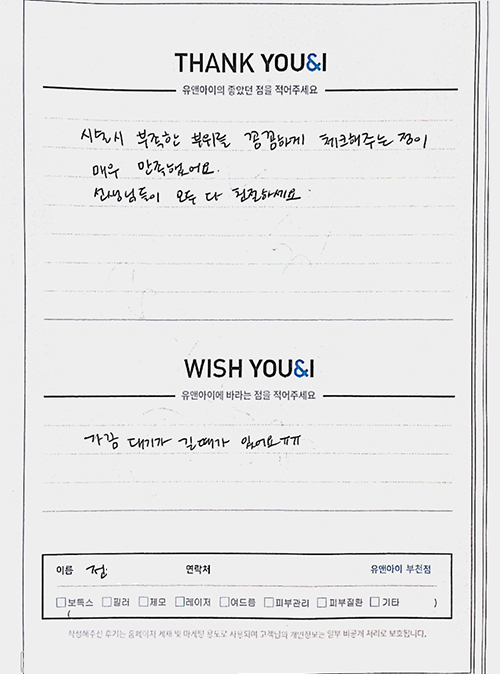 THANK YOU&I
유앤아이의 좋았던 점을 적어주세요
시술시 부족한 부위를 꼼꼼하게 체크해주는 점이
매우 만족했어요.
선생님들이 모두 다 친절하세요.
WISH YOU&I
유앤아이에 바라는 점을 적어주세요
가끔 대기가 길때가 있어요ㅠㅠ
이름 전 연락처 유앤아이 부천점
보톡스 필러 제모 레이저 여드름 피부관리 피부질환 기타 )
(
작성해주신 후기는 홈페이지 게재 및 마케팅 용도로 사용되며 고객님의 개인정보는 일부 비공개 처리로 보호됩니다.